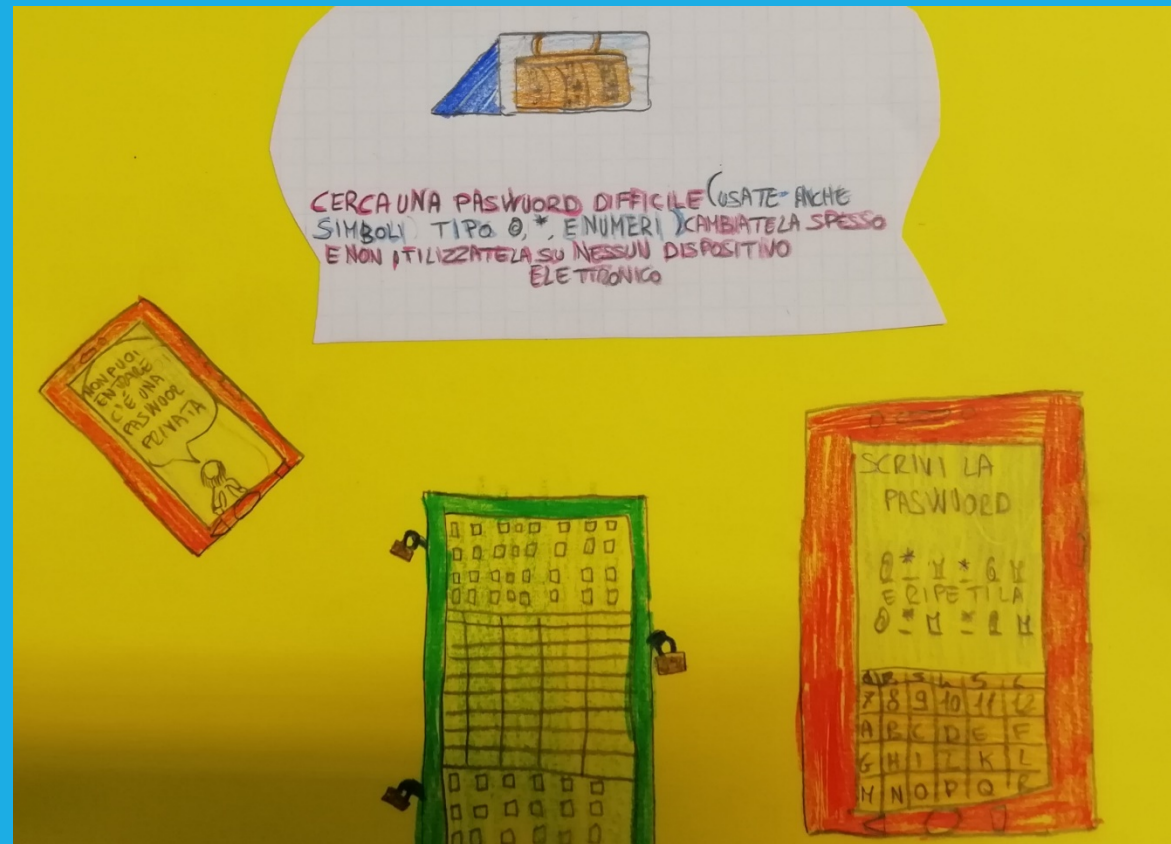 CERCA UNA PASWUORD DIFFICILE (USATE ANCHE
SIMBOLI TIPO @, *, E NUMERI) CAMBIATELA SPESSO
E NON UTILIZZATELA SU NESSUN DISPOSITIVO
ELETTRONICO
NON PUOI
ENTRARE
C'È UNA
PASWOOR
PRIVATA
SCRIVI LA
PASWUORD
E RIPETILA
7 8 9 10 11 12
A B C D E F
G H I Z K L
M N O P Q R